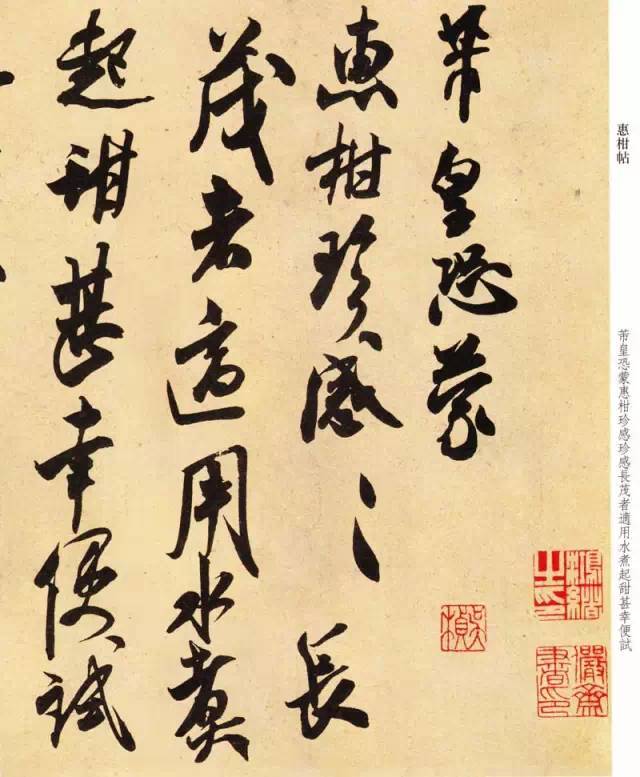 惠柑帖
芾皇恐蒙惠柑珍感珍感長茂者適用水煮起甜甚幸便試
芾皇恐蒙
惠柑珍感〻長
茂者適用水煮
起甜甚幸便試
儼齋
書印